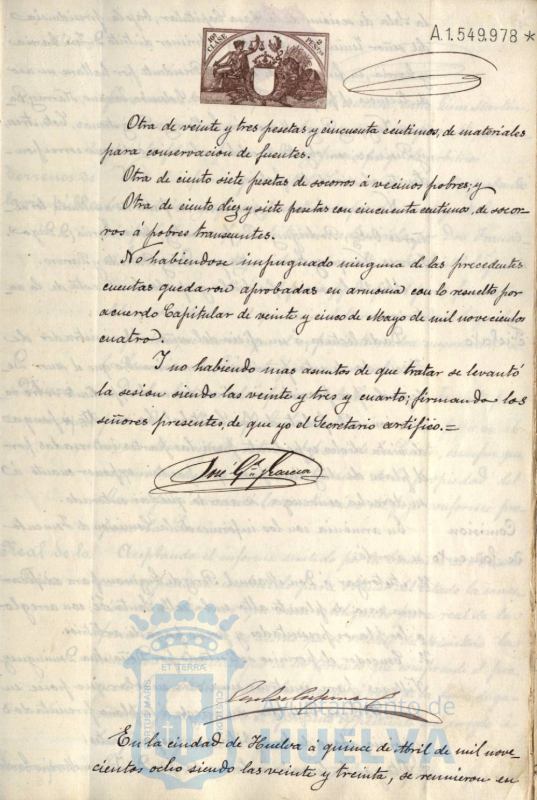 10ª CLASE
2 PESETAS
A.1.549.978 *
Otra de veinte y tres pesetas y cincuenta céntimos, de materiales
para conservacion de fuentes.
Otra de ciento siete pesetas de socorros á vecinos pobres; y
Otra de ciento diez y siete pesetas con cincuenta centimos, de socor-
ros á pobres transeuntes.
No habiendose impugnado ninguna de las precedentes
cuentas quedaron aprobadas en armonia con lo resuelto por
acuerdo Capitular de veinte y cinco de Mayo de mil novecientos
cuatro.
I no habiendo mas asuntos de que tratar se levantó
la sesion siendo las veinte y tres y cuarto; firmando los
señores presentes, de que yo el Secretario certifico.=
José Gª Garcia
ET TERRÆ
PORTUS MARIS
CUSTODIA
Ayuntamiento de
HUELVA
En la ciudad de Huelva á quince de Abril de mil nove-
cientos ocho siendo las veinte y treinta, se reunieron en